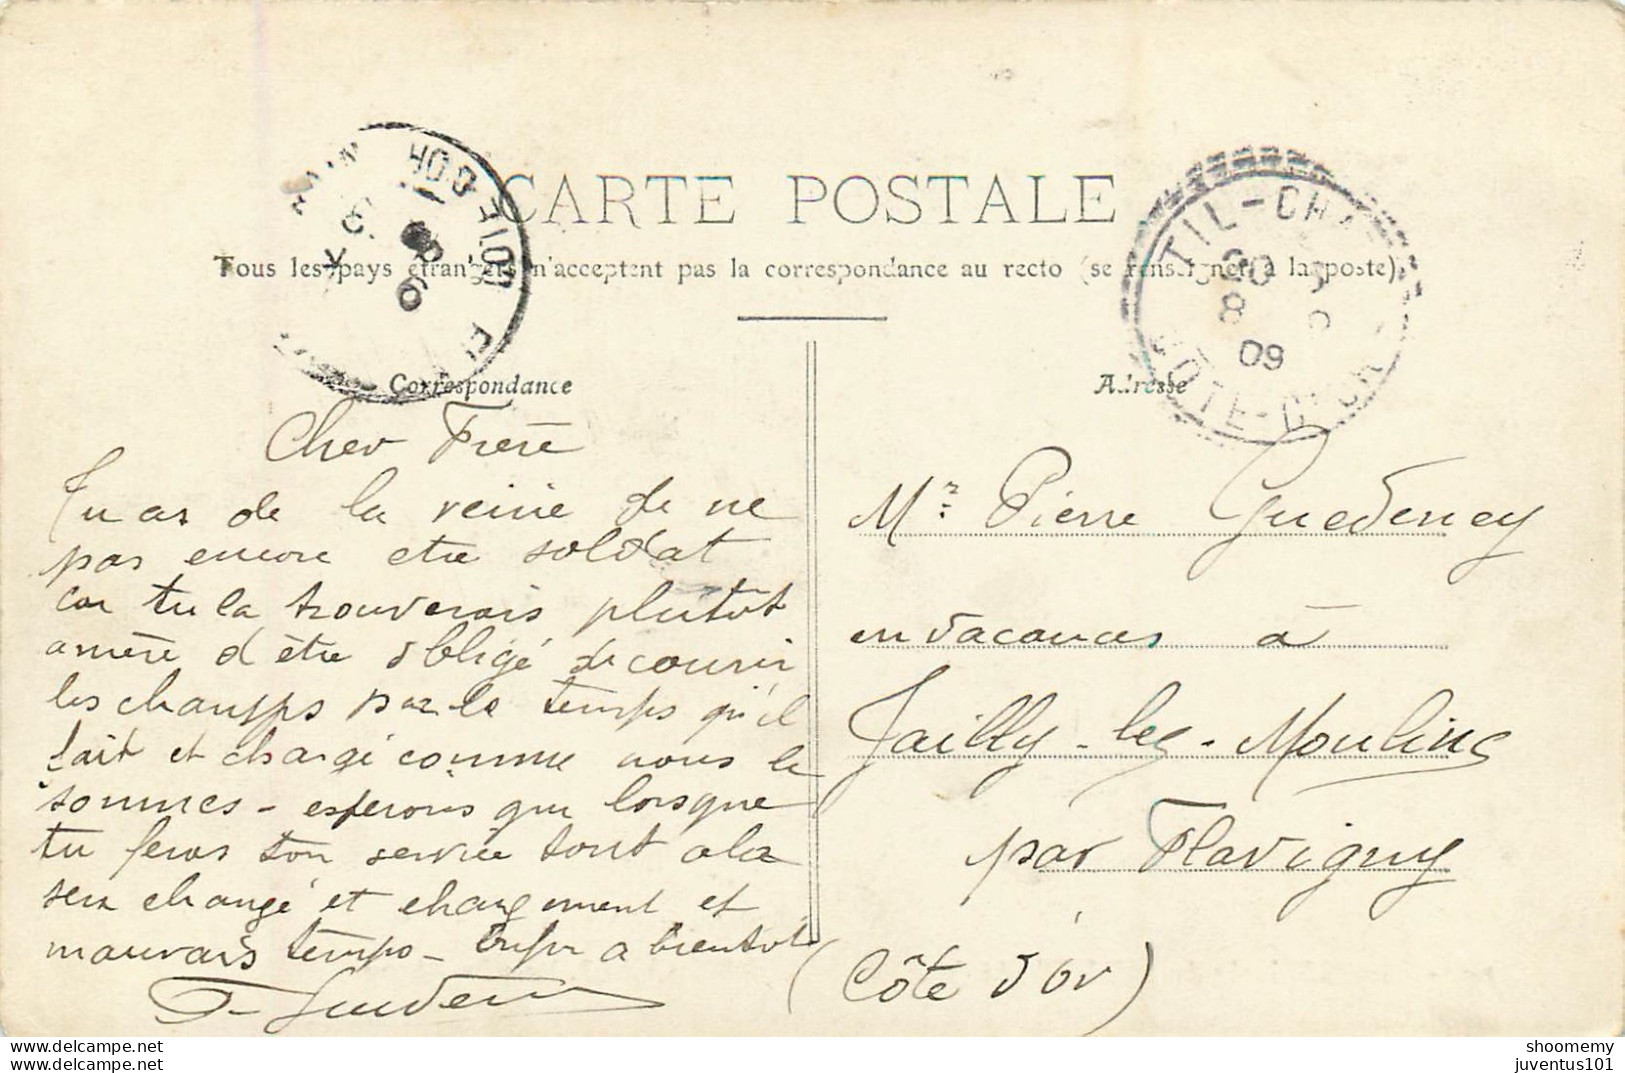 CARTE POSTALE
Tous les pays étrangers n'acceptent pas la correspondance au recto (se renseigner à la poste)
Correspondance
Adresse
TIL-CHA
20 8 09
CÔTE-D'OR
Cher Frere
Tu as de la veine de ne
pas encore etre soldat
car tu la trouverais plutôt
amère d'être obligé de courir
les champs par le temps qu'il
fait et chargé comme nous le
sommes - esperons que lorsque
tu feras ton service tout cela
sera changé et chargement et
mauvais temps - Enfin a bientot
Mr Pierre Guedeney
en vacances à
Jailly-les-Moulins
par Flavigny
(Côte d'Or)
www.delcampe.net
www.delcampe.com
shoomemy
juventus101